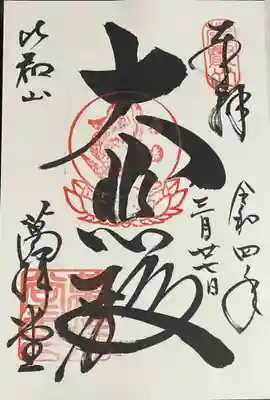 奉拝
令和四年
三月廿七日
大悲殿
比叡山
萬拝堂